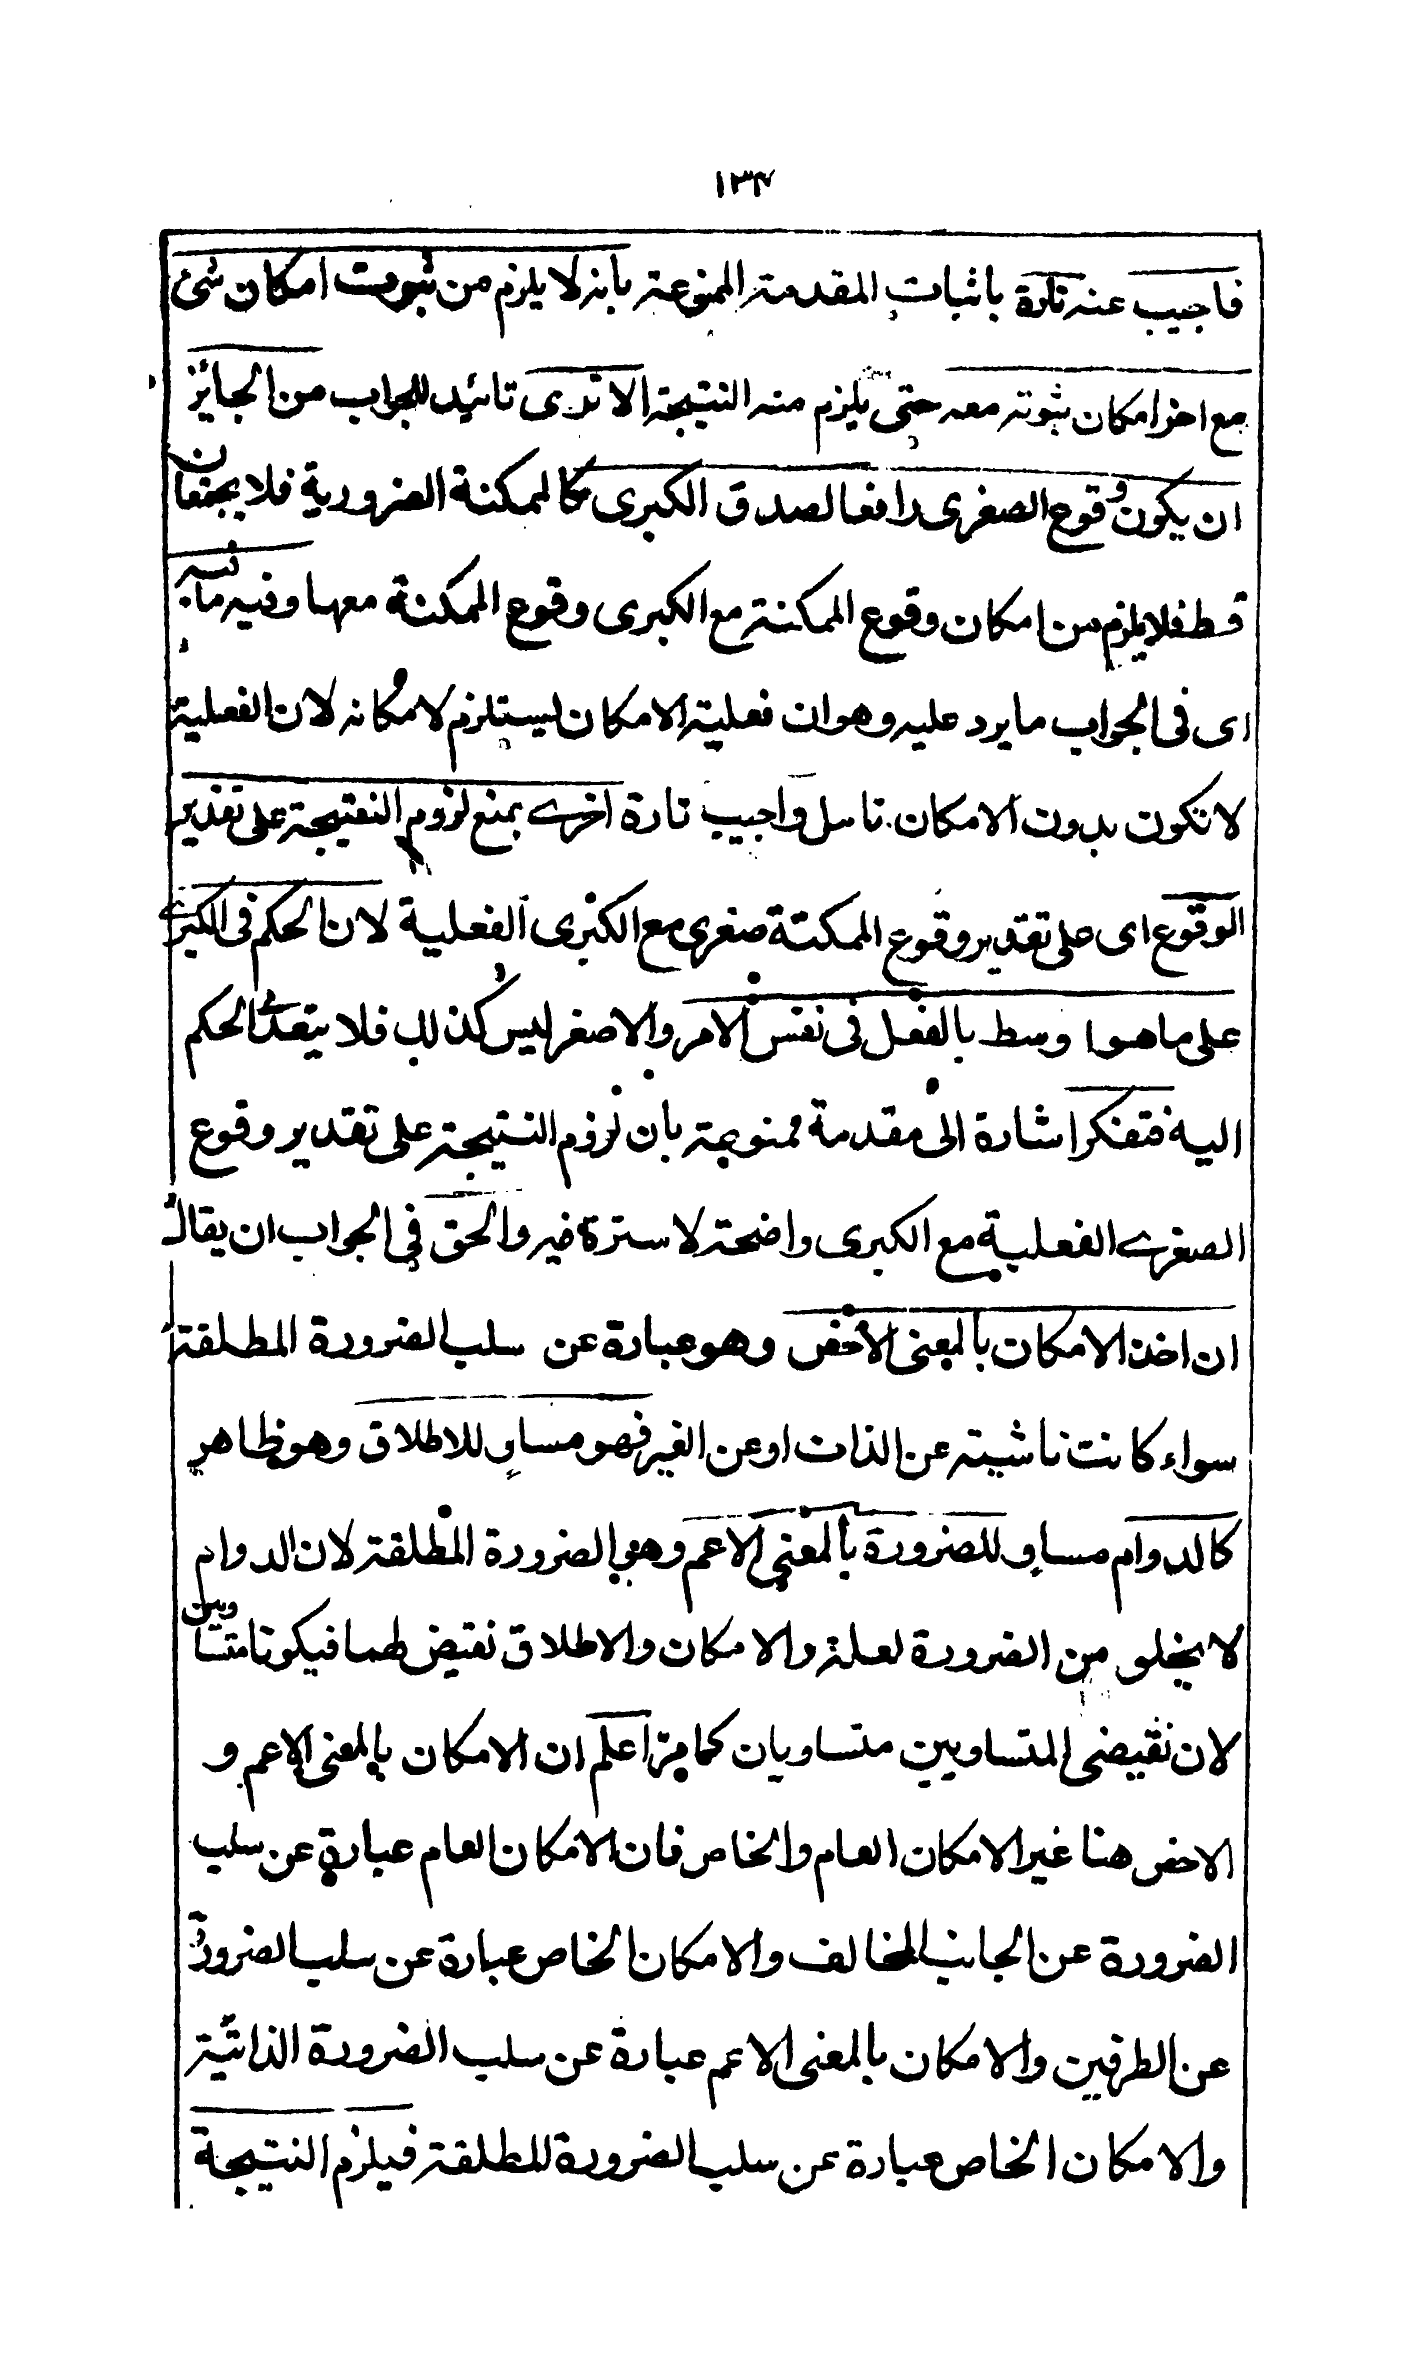 ١٣٧
فاجيب عنه تارة باثبات المقدمة الممنوعة بانه لا يلزم من ثبوت امكان شئ
مع اخر امكان ثبوته معه حتى يلزم منه النتيجة الا ترى تائيد للجواب من الجائز
ان يكون وقوع الصغرى رافعا لصدق الكبرى كالممكنة الضرورية فلا يجتمعان
قط فلا يلزم من امكان وقوع الممكنة مع الكبرى وقوع الممكنة معها وفيه ما فيه
اى فى الجواب ما يرد عليه وهو ان فعلية الامكان ليستلزم لامكانه لان الفعلية
لا تكون بدون الامكان تامل واجيب تارة اخرے بمنع لزوم النتيجة على تقدير
الوقوع اى على تقدير وقوع الممكنة صغرى مع الكبرى الفعلية لان الحكم فى الكبرے
على ما هو اوسط بالفعل فى نفس الامر والاصغر ليس كذلك فلا يتعدى الحكم
اليه فتفكر اشارة الى مقدمة ممنوعة بان لزوم النتيجة على تقدير وقوع
الصغرے الفعلية مع الكبرى واضحة لا سترة فيه والحق فى الجواب ان يقال
ان اخذ الامكان بالمعنى الاخص وهو عبارة عن سلب الضرورة المطلقة
سواء كانت ناشية عن الذات او عن الغير فهو مساو للاطلاق وهو ظاهر
كالدوام مساو للضرورة بالمعنى الاعم وهو الضرورة المطلقة لان الدوام
لا يخلو من الضرورة لعلة والامكان والاطلاق نقيض لهما فيكونا متساويين
لان نقيضى المتساويين متساويان كما مر اعلم ان الامكان بالمعنى الاعم و
الاخص هنا غير الامكان العام والخاص فان الامكان العام عبارة عن سلب
الضرورة عن الجانب المخالف والامكان الخاص عبارة عن سلب الضرورة
عن الطرفين والامكان بالمعنى الاعم عبارة عن سلب الضرورة الذاتية
والامكان الخاص عبارة عن سلب الضرورة المطلقة فيلزم النتيجة